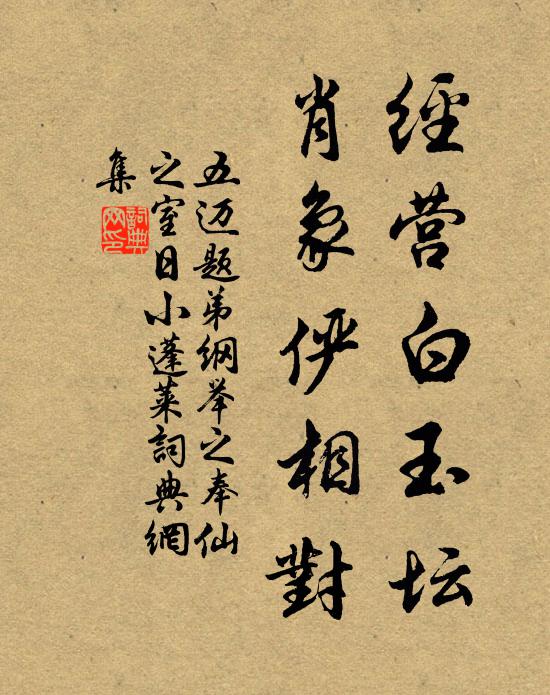 經营白玉坛
肖象俨相對
五迈题弟纲举之奉仙
之室日小蓬莱詞典網
集
詞典网印